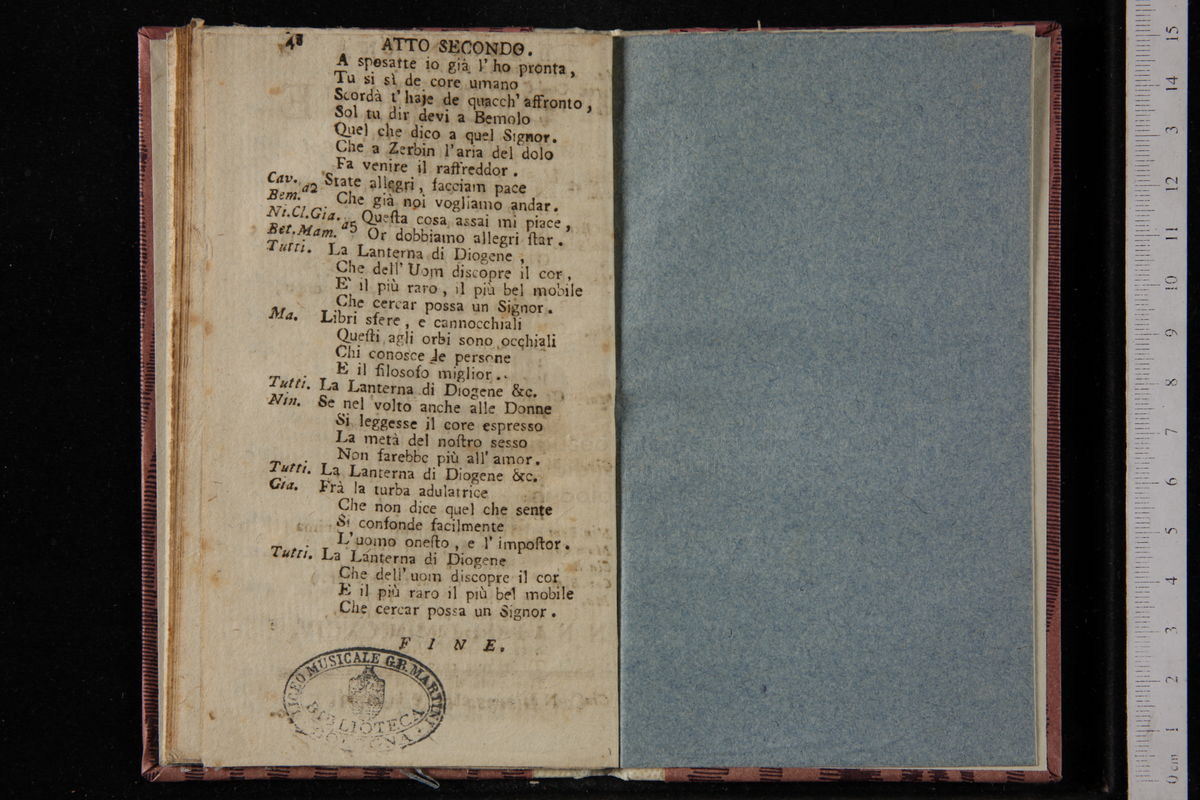 48 ATTO SECONDO.
A sposatte io già l'ho pronta,
Tu si sì de core umano
Scordà t'haje de quacch'affronto,
Sol tu dir devi a Bemolo
Quel che dico a quel Signor.
Che a Zerbin l'aria del dolo
Fa venire il raffreddor.
Cav. a2 State allegri, facciam pace
Bem. Che già noi vogliamo andar.
Ni.Cl.Gia. a5 Questa cosa assai mi piace,
Bet.Mam. Or dobbiamo allegri star.
Tutti. La Lanterna di Diogene,
Che dell'Uom discopre il cor,
E' il più raro, il più bel mobile
Che cercar possa un Signor.
Ma. Libri sfere, e cannocchiali
Questi agli orbi sono occhiali
Chi conosce le persone
E il filosofo miglior..
Tutti. La Lanterna di Diogene &c.
Nin. Se nel volto anche alle Donne
Si leggesse il core espresso
La metà del nostro sesso
Non farebbe più all'amor.
Tutti. La Lanterna di Diogene &c.
Gia. Frà la turba adulatrice
Che non dice quel che sente
Si confonde facilmente
L'uomo onesto, e l'impostor.
Tutti. La Lanterna di Diogene
Che dell'uom discopre il cor
E il più raro il più bel mobile
Che cercar possa un Signor.
FINE.
LICEO MUSICALE G.B. MARTINI
BIBLIOTECA
BOLOGNA
15
14
13
12
11
10
9
8
7
6
5
4
3
2
1
0 cm